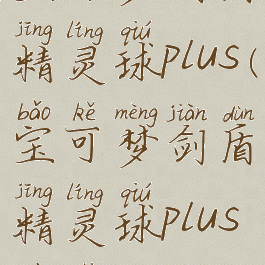 jīng líng qiú
精灵球plus(
bǎo kě mèng jiàn dùn
宝可梦剑盾
jīng líng qiú
精灵球plus